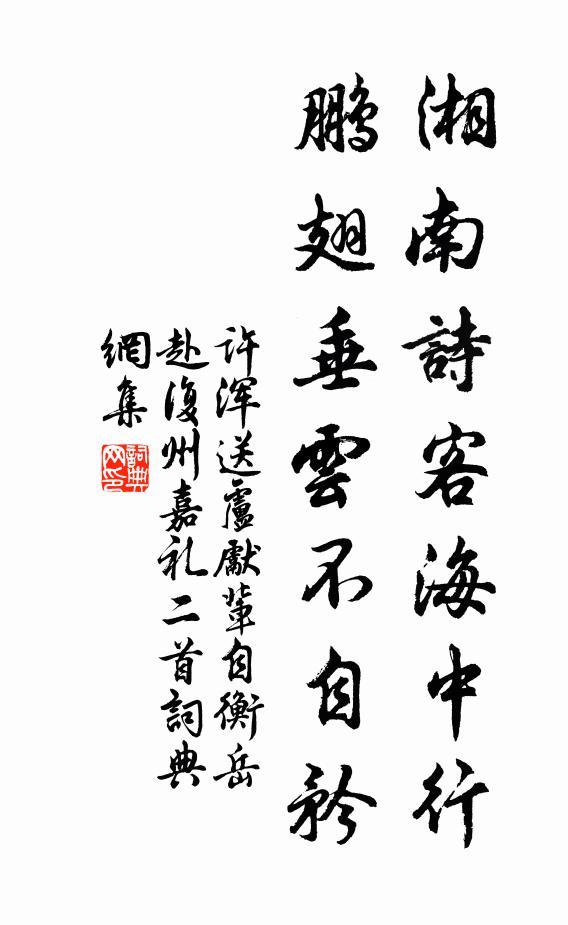 湘南詩客海中行
鵬翅垂雲不自矜
许浑送盧獻輩自衡岳
赴復州嘉礼二首詞典
網集
詞典
网印